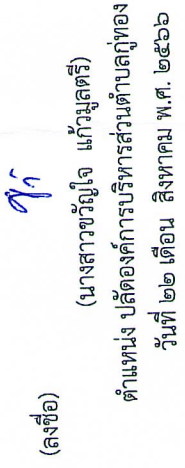 (ลงชื่อ)
(นางสาวขวัญใจ แก้วมูลตรี)
ตำแหน่ง ปลัดองค์การบริหารส่วนตำบลกู่ทอง
วันที่ ๒๒ เดือน สิงหาคม พ.ศ. ๒๕๖๖